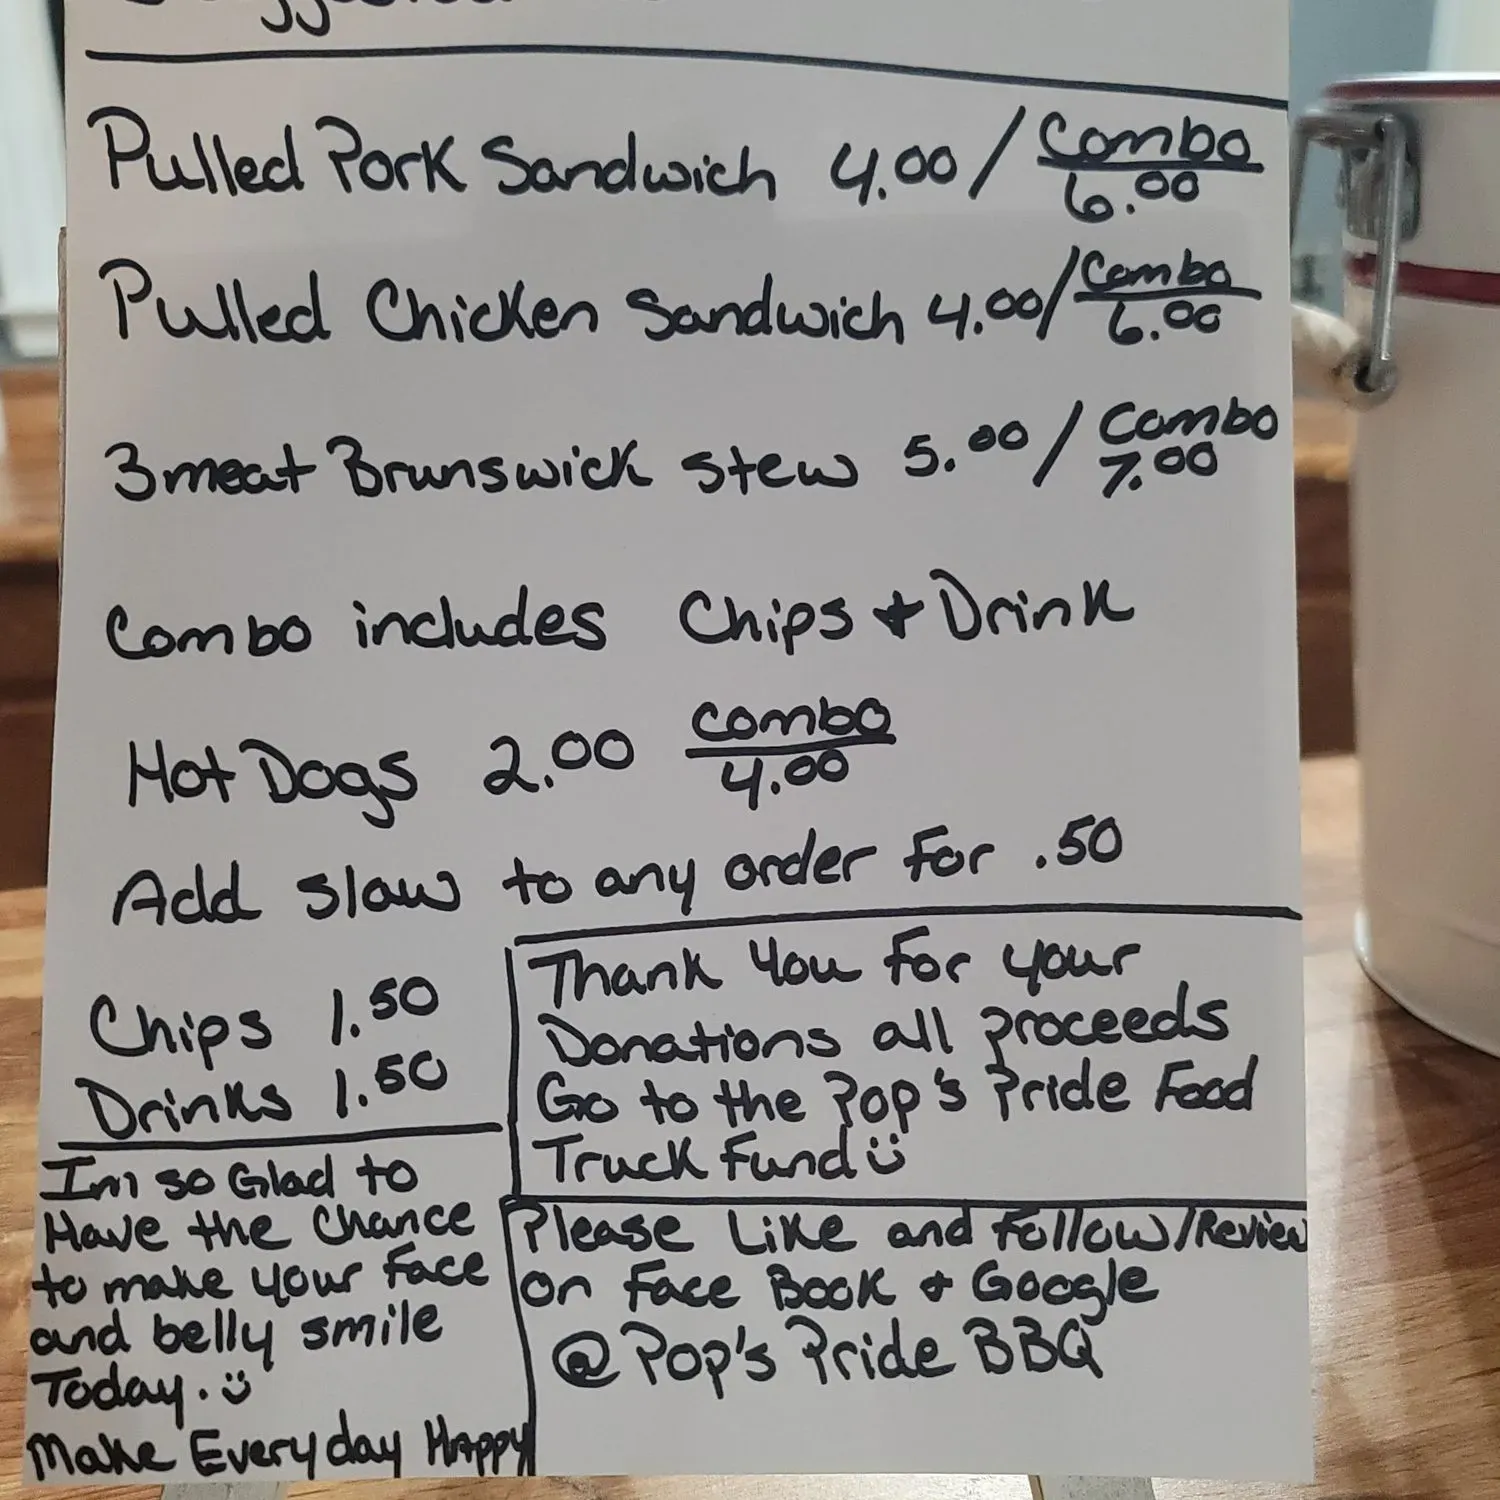 Pulled Pork Sandwich 4.00 / Combo 6.00
Pulled Chicken Sandwich 4.00 / Combo 6.00
3 meat Brunswick stew 5.00 / Combo 7.00
Combo includes Chips + Drink
Hot Dogs 2.00 Combo 4.00
Add slaw to any order for .50
Chips 1.50
Drinks 1.50
Thank You for your
Donations all proceeds
Go to the Pop's Pride Food
Truck Fund
Im so Glad to
Have the Chance
to make your face
and belly smile
Today.
Make Everyday Happy
Please Like and Follow/Review
on Face Book + Google
@Pop's Pride BBQ